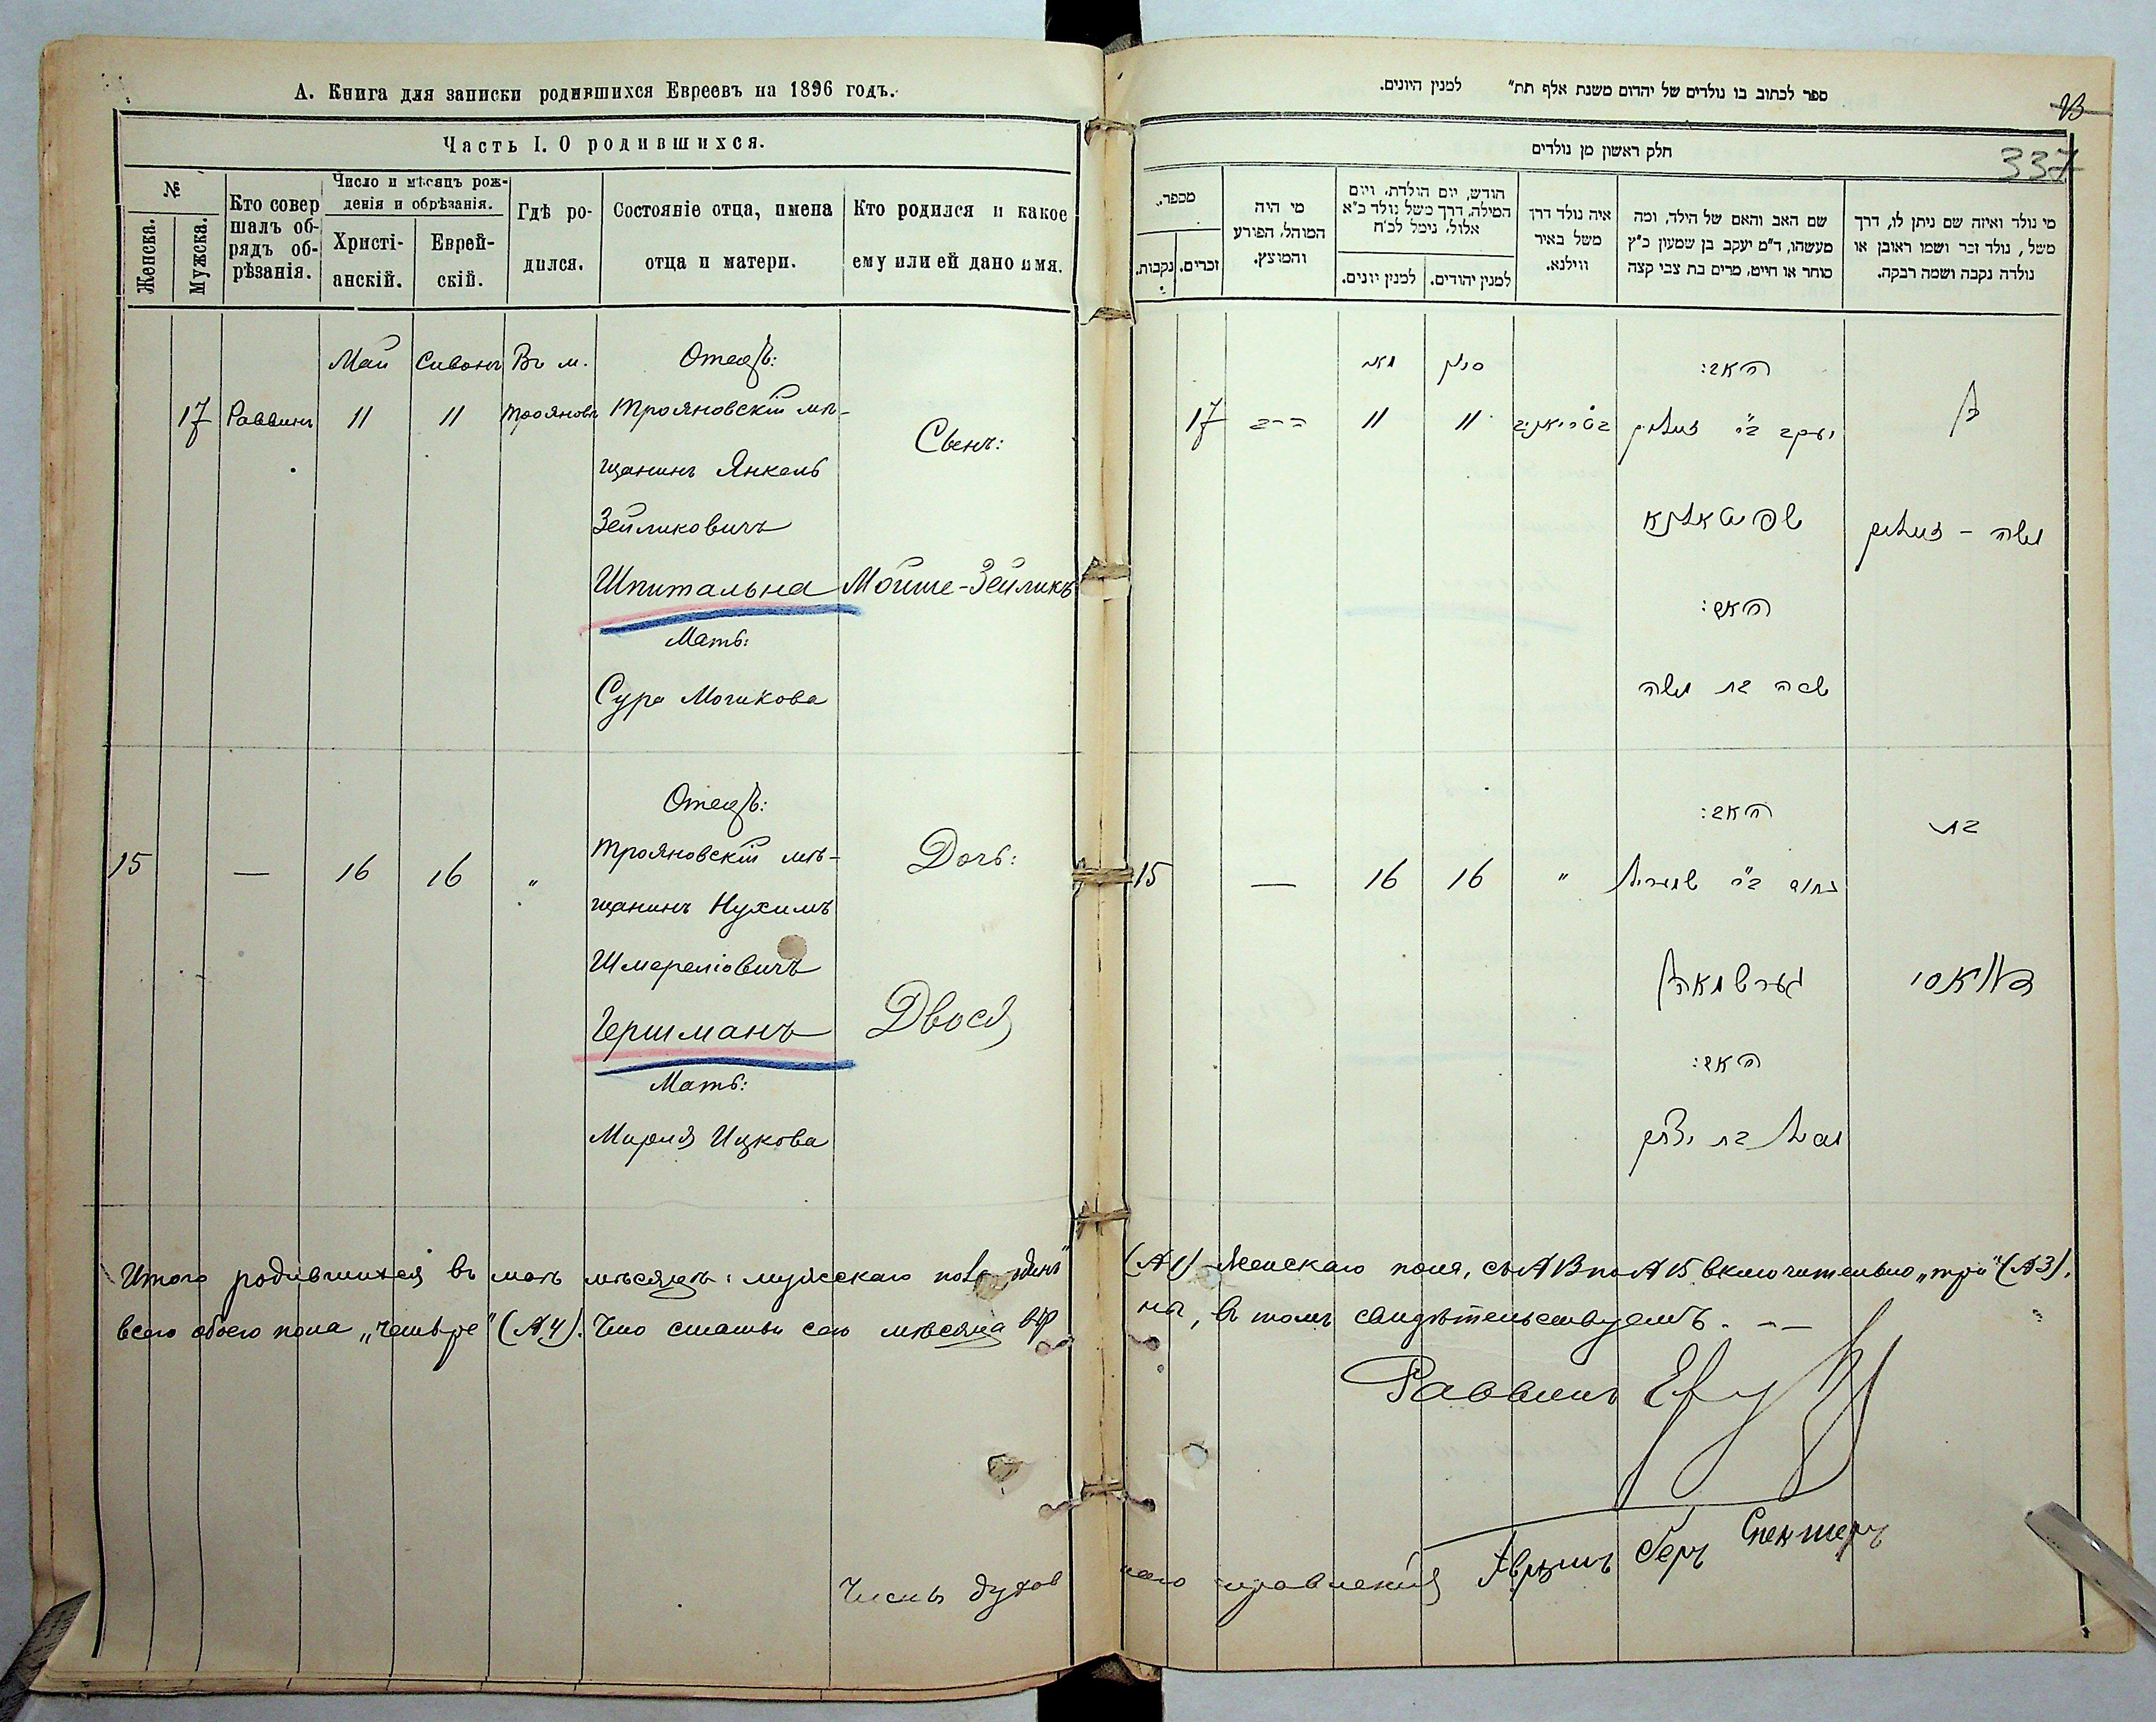 А. Книга для записки родившихся Евреевъ на 1896 годъ.
Часть I. О родившихся.
№
Женска.
Мужска.
Кто совер
шалъ об-
рядъ об-
рѣзанія.
Число и мѣсяцъ рож-
денія и обрѣзанія.
Христі-
анскій.
Еврей-
скій.
Гдѣ ро-
дился.
Состояніе отца, имена
отца и матери.
Кто родился и какое
ему или ей дано имя.
Май Сивонъ Въ м. Отецъ:
17 Раввинъ 11 11 Трояновъ Трояновскій мѣ-
щанинъ Янкель
Сынъ:
Зейликовичъ
Шпитальна Мойше-Зейликъ
Мать:
Сура Мошкова
Отецъ:
15 — 16 16 " Трояновскій мѣ- Дочь:
щанинъ Нухимъ
Шмереліовичъ
Гершманъ Двося
Мать:
Мирля Ицкова
Итого родившихся въ маѣ мѣсяцѣ: мужскаго пола „одинъ"
всего обоего пола „четыре" (№ 4). Что статьи сего мѣсяца
Членъ духов
ספר לכתוב בו נולדים של יהדום משנת אלף תת״ למנין היונים.
23
337
חלק ראשון מן נולדים
מספר.
נקבות.
זכרים.
מי היה
המוהל, הפורע
והמוצץ.
חודש, יום הולדת, ויום
המילה, דרך משל נולד כ״א
אלול, נימל לכ״ח
למנין יונים.
למנין יהודים.
איה נולד דרך
משל באיר
ווילנא.
שם האב והאם של הילד, ומה
מעשהו, ד״מ יעקב בן שמעון כ״ץ
סוחר או חייט, מרים בת צבי קצה
מי נולד ואיזה שם ניתן לו, דרך
משל, נולד זכר ושמו ראובן או
נולדה נקבה ושמה רבקה.
מאי סיון האב:
17 הרב 11 11 יעקב ב״ר זעליק בן
שפיטאלנא משה - זעליק
האם:
שרה בת משה
האב: בת
15 — 16 16 " נחום ב״ר שמעריל
גערשמאהן דוואסי
האם:
מירל בת יצחק
(№ 1) Женскаго пола, съ № 13 по № 15 включительно „три" (№ 3),
ны, въ томъ свидѣтельствуемъ. —
Раввинъ
наго правленія Аврумъ Беръ Спекторъ